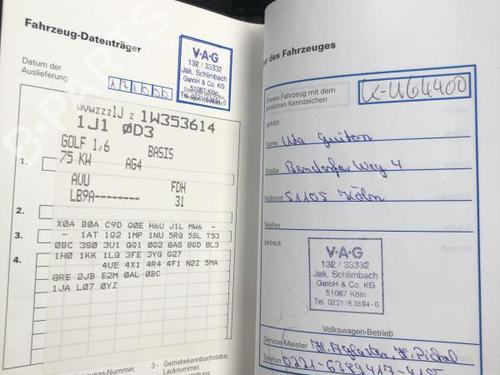 Fahrzeug-Datenträger
Datum der
Auslieferung
V·A·G
132 / 33332
Jak. Schlimbach
GmbH & Co. KG
51067 Köln
WVWZZZ1J Z 1W353614
1J1 0D3
GOLF 1,6 BASIS
75 KW AG4
1.
AVU FDH
LB9A-------- 31
2.
X0A B0A C9D G0E H6U J1L MW6 -
3.
- 1AT 1G2 1MP 1NU 5RQ 5SL T53
0BC 3S0 3U1 QQ1 0G2 BAS BGD BL3
4.
1H0 1KK 1LQ 3FE 3YG G27
4UE 4X1 4R4 4F1 N2Z 5MA
8RE 2JB E2M 0AL 0BC
1JA L07 0YZ
3 - Getriebekennbuchstabe,
Lacknummer,
des Fahrzeuges
Dieses Fahrzeug mit dem
amtlichen Kennzeichen
K-U64400
gehört
Name Uta
Straße 4
Wohnort 51105 Köln
Telefon
betreut
V·A·G
132 / 33332
Jak. Schlimbach
GmbH & Co. KG
51067 Köln
Tel. 0221/63894-0
Volkswagen-Betrieb
Service-Meister
Telefon